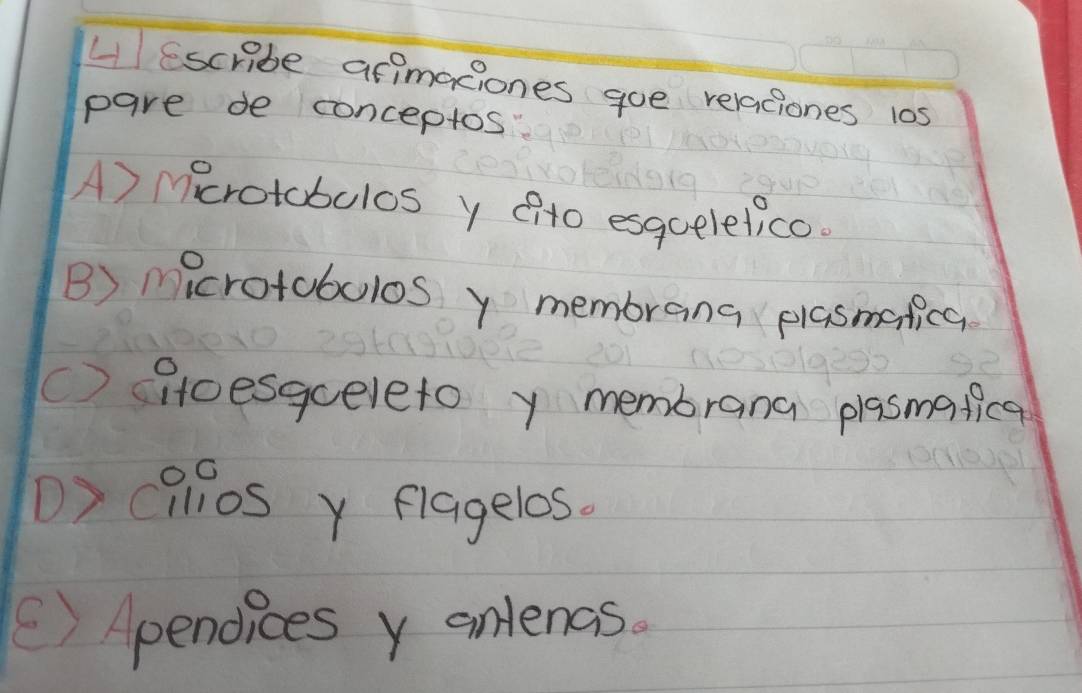 4) Escribe afimaciones que relaciones los
pare de conceptos:
A> Microtubulos y cito esqueletico.
B> microtubulos y membrana plasmatica.
C> citoesqueleto y membrana plasmatica
D> Cilios y flagelos.
E> Apendices y antenas.